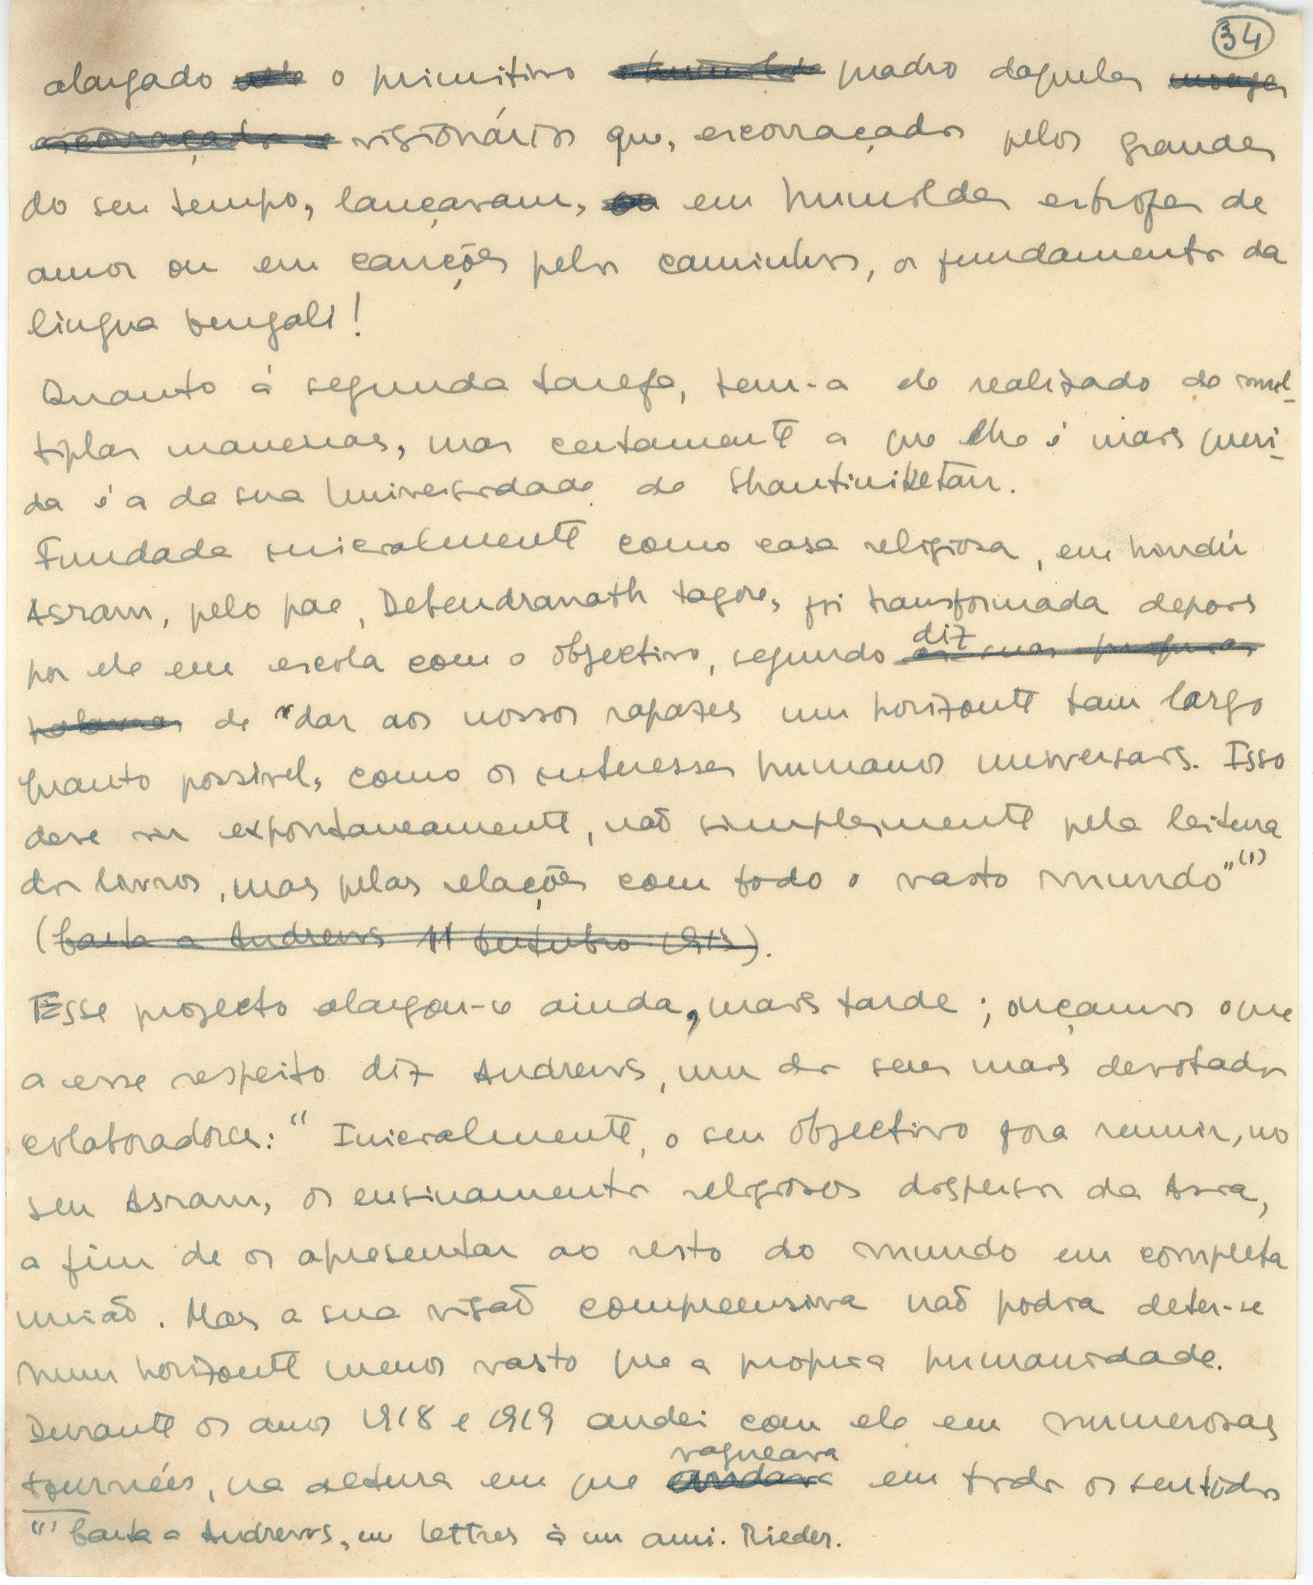 34
alargado o primitivo quadro daqueles
visionários que, escorraçados pelos grandes
do seu tempo, lançavam, em humildes estrofes de
amor ou em canções pelos caminhos, os fundamentos da
lingua bengali!
Quanto á segunda tarefa, tem-a ele realizado de mul-
tiplas maneiras, mas certamente a que lhe é mais queri-
da é a da sua Universidade de Shantiniketan.
Fundada inicialmente como casa religiosa, em hindú
Asram, pelo pae, Debendranath Tagore, foi transformada depois
por ele em escola com o objectivo, segundo diz
de "dar aos nossos rapazes um horizonte tam largo
quanto possivel, como os interesses humanos universais. Isso
deve vir expontaneamente, não simplesmente pela leitura
dos livros, mas pelas relações com todo o vasto mundo" (1)
(Carta a Andrews 11 Outubro 1913).
Esse projecto alargou-se ainda, mais tarde; ouçamos o que
a esse respeito diz Andrews, um dos seus mais devotados
colaboradores: "Inicialmente, o seu objectivo fora reunir, no
seu Asram, os ensinamentos religiosos dispersos da Asia,
a fim de os apresentar ao resto do mundo em completa
união. Mas a sua visão compreensiva não podia deter-se
num horizonte menos vasto que a propria humanidade.
Durante os anos 1918 e 1919 andei com ele em numerosas
tournées, na altura em que vagueava em todos os sentidos
(1) Carta a Andrews, in Lettres à un ami. Rieder.